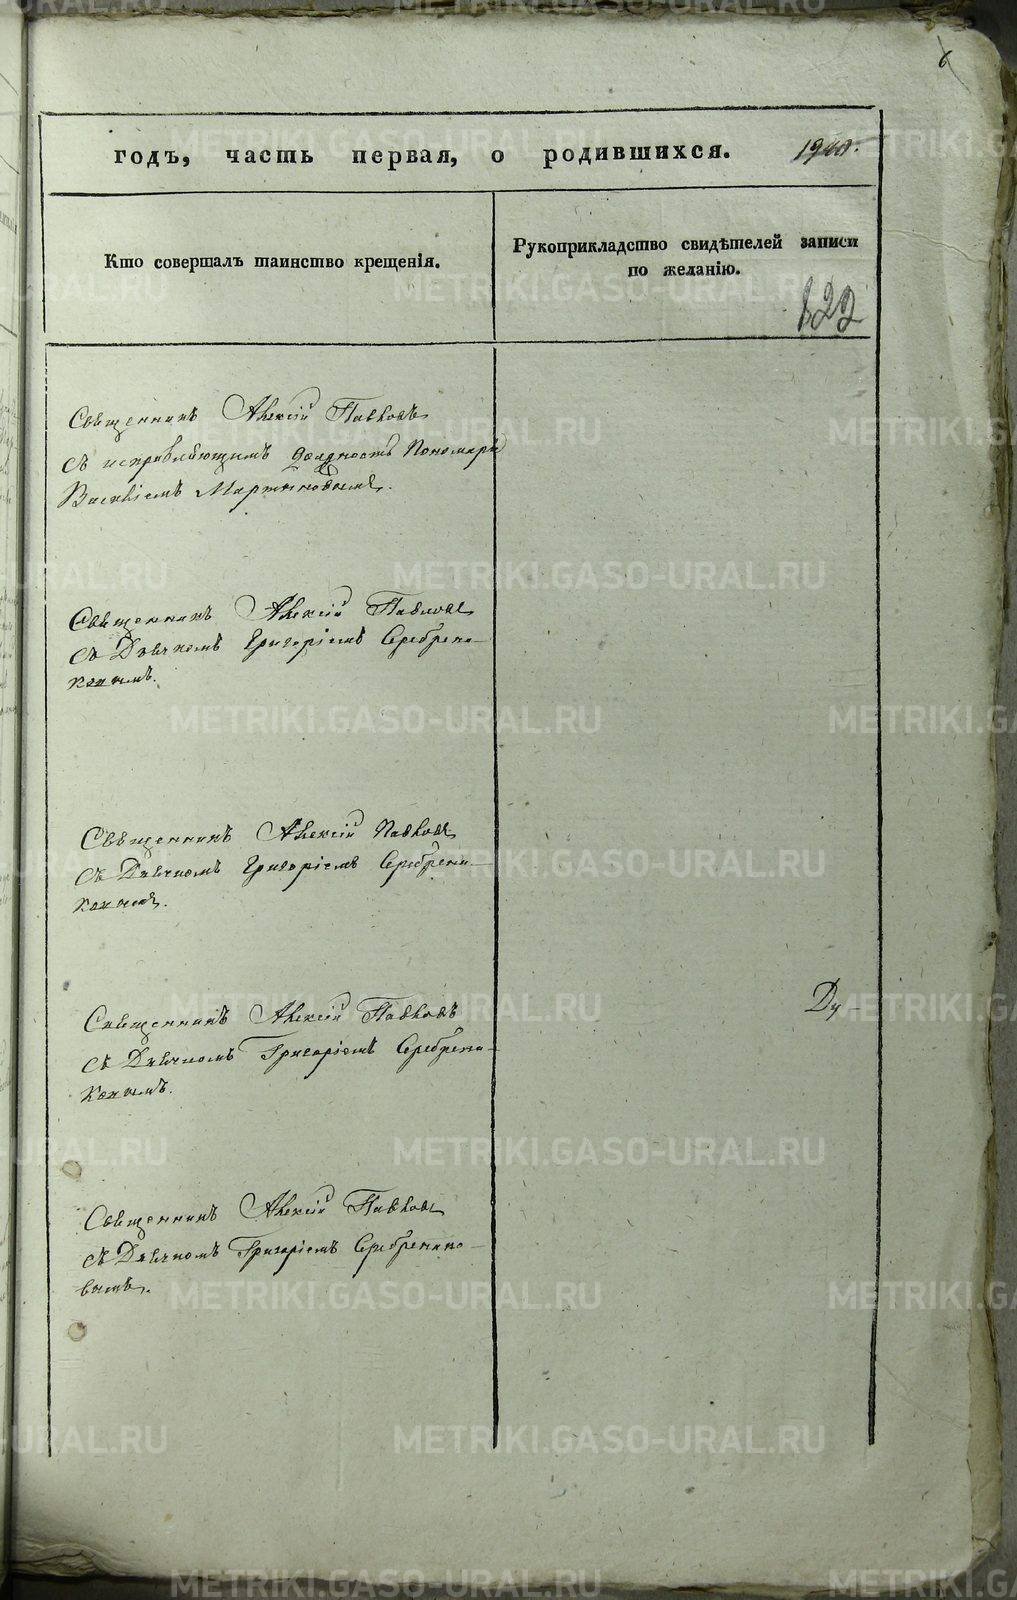 6
годъ, часть первая, о родившихся.
Кто совершалъ таинство крещенія.
Рукоприкладство свидѣтелей записи
по желанію.
122
Священникъ Алексій Павловъ
съ исправляющимъ должность Пономаря
Василіемъ Мартыновымъ.
Священникъ Алексій Павловъ
съ Дьячкомъ Григоріемъ Серебрени-
ковымъ.
Священникъ Алексій Павловъ
съ Дьячкомъ Григоріемъ Серебрени-
ковымъ.
Священникъ Алексій Павловъ
съ Дьячкомъ Григоріемъ Серебрени-
ковымъ.
Ду-
Священникъ Алексій Павловъ
съ Дьячкомъ Григоріемъ Серебренико-
вымъ.
METRIKI.GASO-URAL.RU